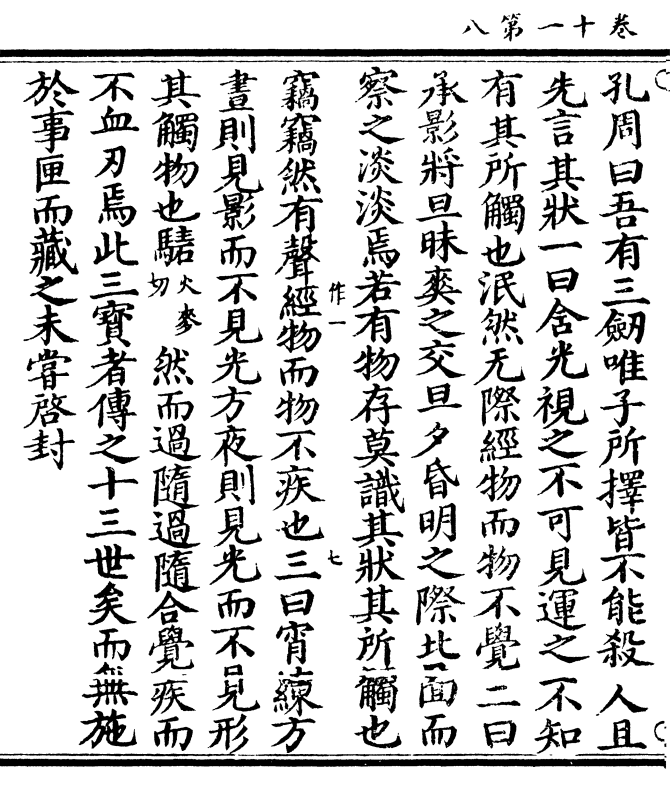 卷十一第八
孔周曰吾有三劒唯子所擇皆不能殺人且
先言其狀一曰含光視之不可見運之不知
有其所觸也泯然无際經物而物不覺二曰
承影將旦昧爽之交旦夕昏明之際北面而
察之淡淡焉若有物存莫識其狀其所觸也
竊竊然有聲經物而物不疾也三曰宵練方
作一
七
晝則見影而不見光方夜則見光而不見形
其觸物也騞火麥切然而過隨過隨合覺疾而
不血刃焉此三寶者傳之十三世矣而無施
於事匣而藏之未嘗啓封